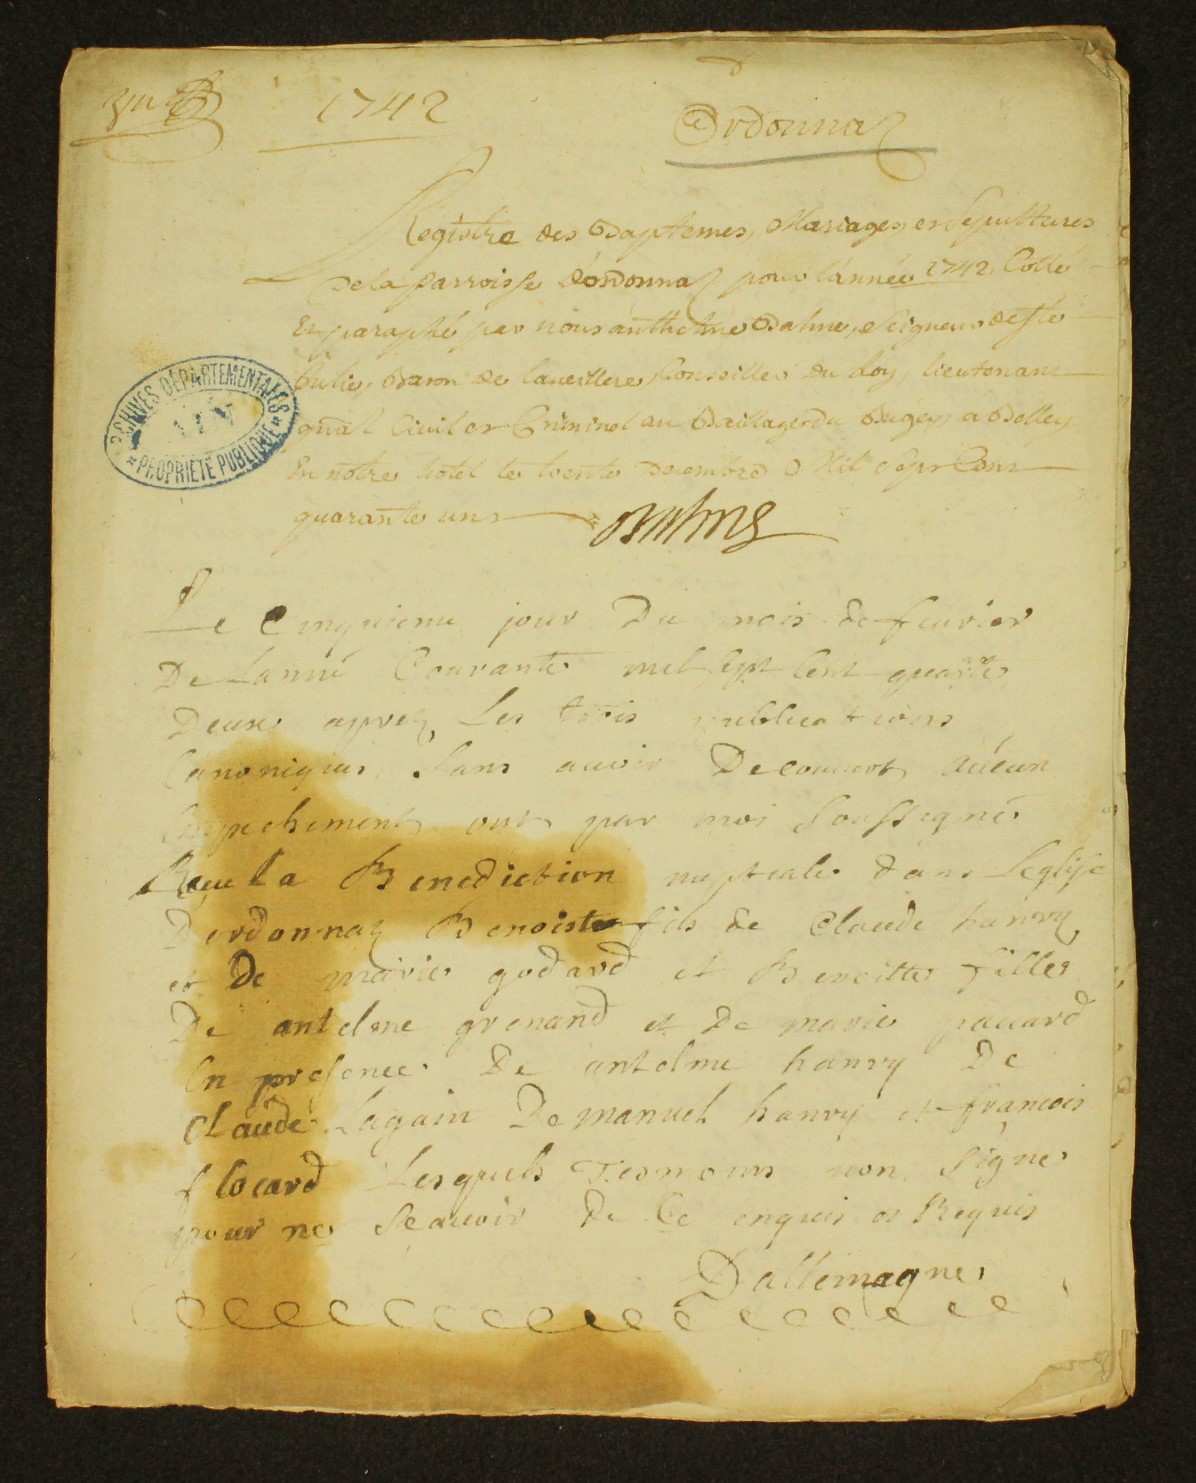 1742
Ordonnaz
Registre des Baptemes, Mariages, et Sepultures
de la parroisse d'ordonnaz pour l'année 1742. Cotté
Et paraphé par nous anthelme Balme, Seigneur de Ste
Julie, Baron de Conseiller du Roy, lieutenant
gñal Civil et Criminel au Baillage du Bugey a Belley
En notre hotel le trente decembre Mil sept Cent
quarante un
Balme
ARCHIVES DÉPARTEMENTALES
AIN
* PROPRIÉTÉ PUBLIQUE *
Le Cinquieme jour Du mois de feurier
De Lanné Courante mil sept Cent quarte
Deux apprez Les trois publications
Canoniques Sans auoir Decouuert aucun
Empechement ont par moi Soussigné
Receu La Benediction nuptiale dans Leglise
Dordonnaz Benoist fils de Claude hanry
et De marie godard et Benoitte fille
De antelme grenand et De marie pauard
En presence De antelme hanry De
Claude Lagain De manuel hanry et francois
flocard Lesquels Tesmoins non Signe
pour ne Scauoir De Ce enquis et Requis
Dallemagne